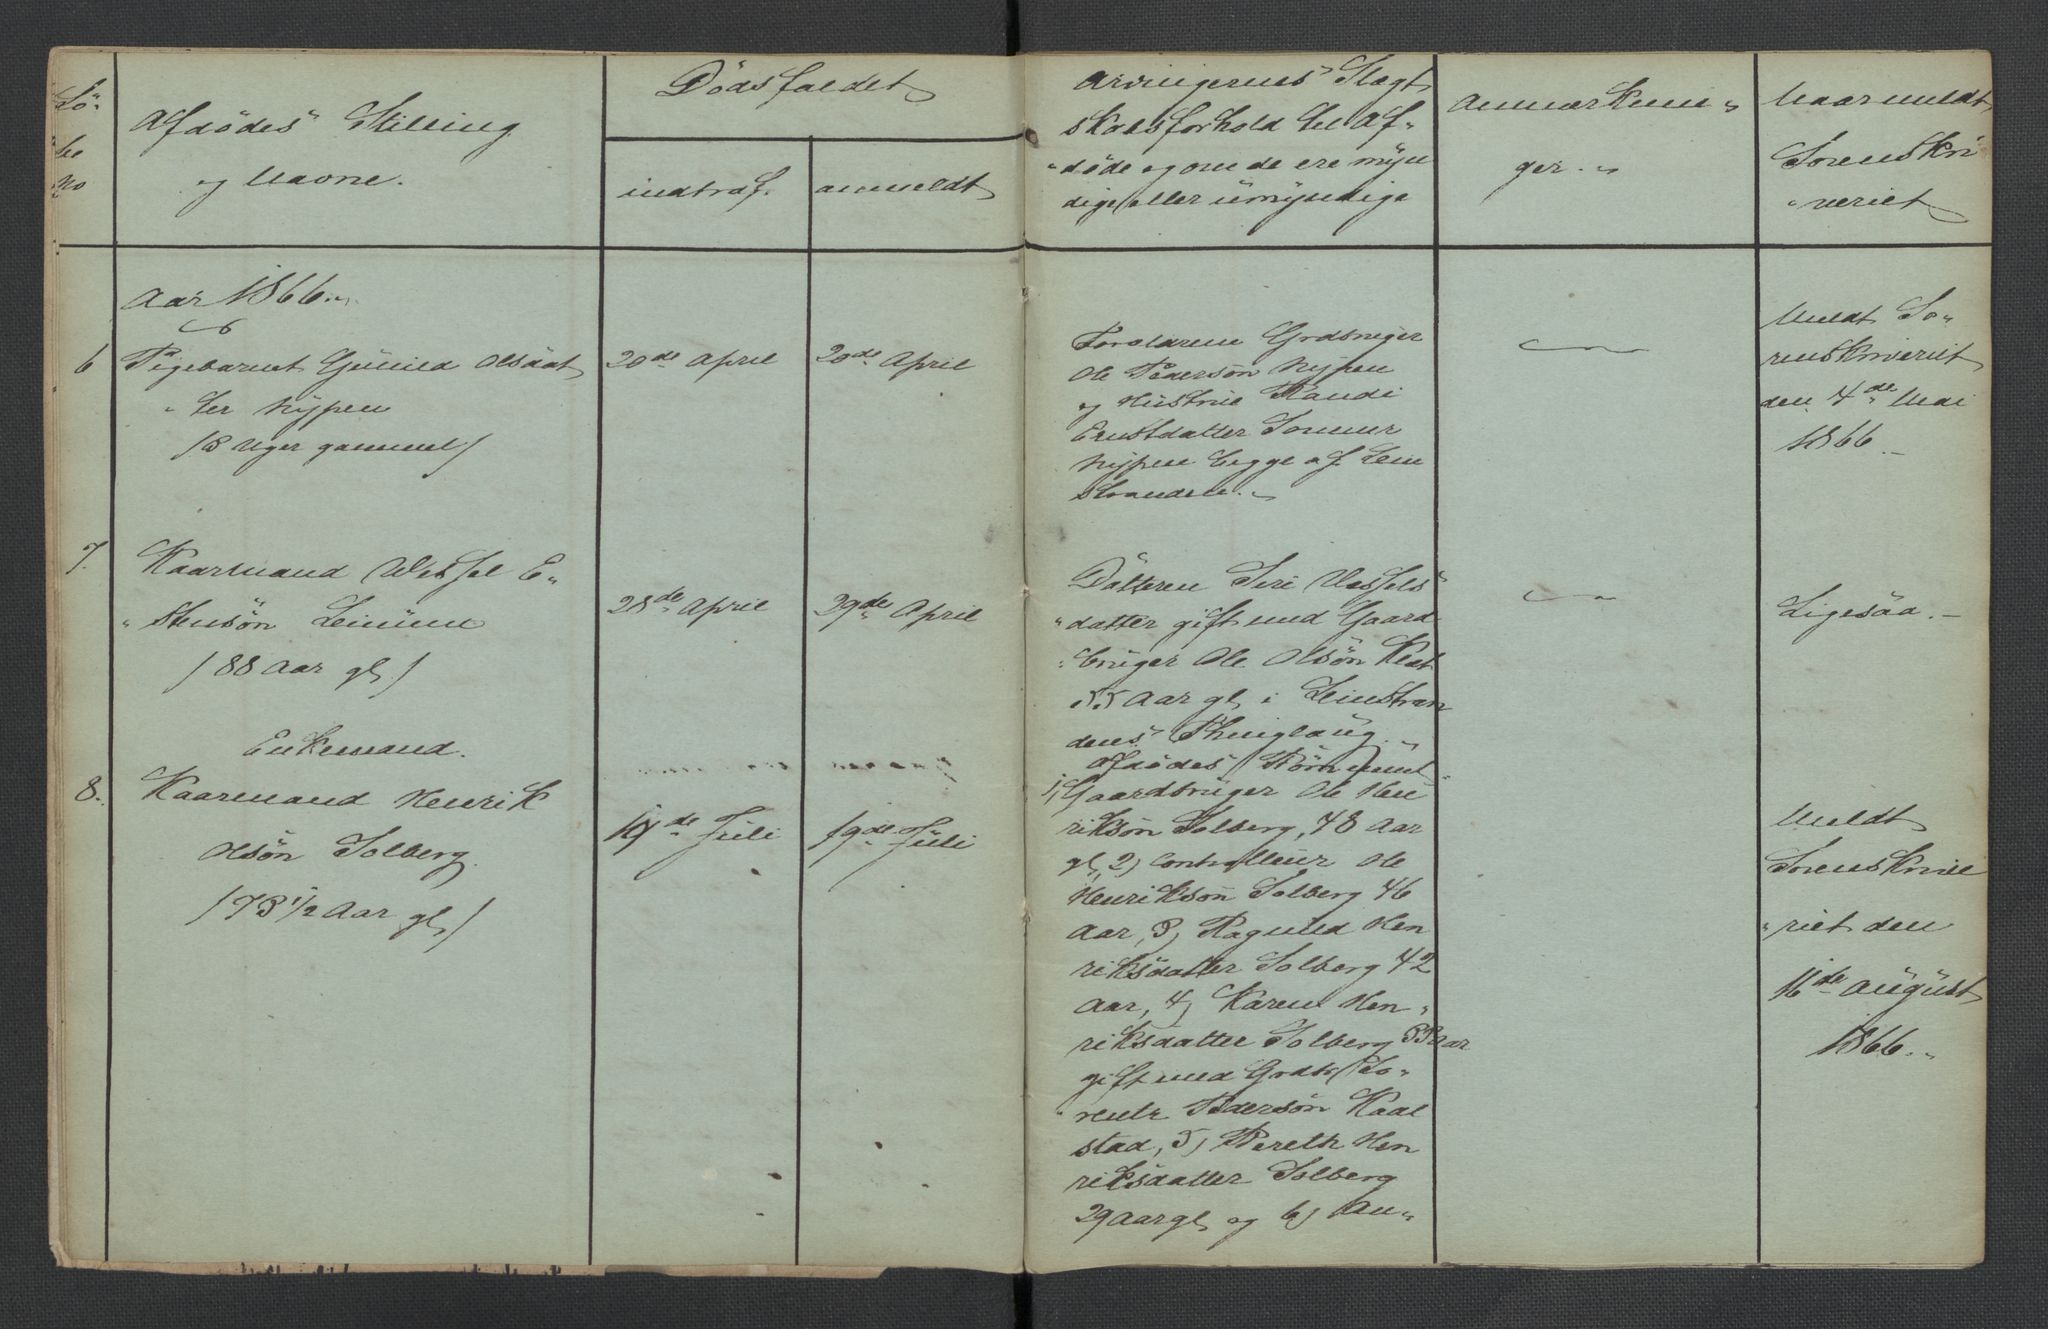 Lö-
be
No
Afdödes Stilling
og Navne.
Dödsfaldet
indtraf.
anmeldt
Arvingernes Slægt
skabsforhold til Af-
döde og om de ere myn
dige eller umyndige
Anmærknin-
ger.
Naar meldt
Sorenskri
veriet
Aar 1866.
6
Pigebarnet Gunild Olsdat
ter Nypen
/8 Uger gammel/
20de April
20de April
Forældrene Grdbruger
Ole Pedersøn Nypen
og Hustrue Randi
Erntsdatter Sommer
Nypen begge af Lein
stranden.
Meldt So-
renskriveriet
den 4de Mai
1866.
7.
Kaarmand Wessel E-
stensøn Leinum
/88 Aar gl/
28de April
29de April
Datteren Siri Vessels
datter gift med Gaard
bruger Ole Olsøn
55 Aar gl, i Leinstran
dens Thinglaug.
Ligesaa.
Enkemand.
8.
Kaarmand Henrik
Olsøn Solberg
/73 1/2 Aar gl/
19de Juli
19de Juli
Afdödes Børn
1, Gaardbruger Ole Hen
riksøn Solberg, 48 Aar
gl, 2) Controlleur Ole
Henriksøn Solberg 46
Aar, 3) Ragnild Hen
riksdatter Solberg 42
Aar, 4) Karen Hen-
riksdatter Solberg 33 Aar
gift med Grdbr Lo-
rents Pedersøn Kaal
stad, 5) Bereth Hen
riksdatter Solberg
29 Aar gl, og 6) An-
Meldt
Sorenskrive
riet den
16de August
1866.